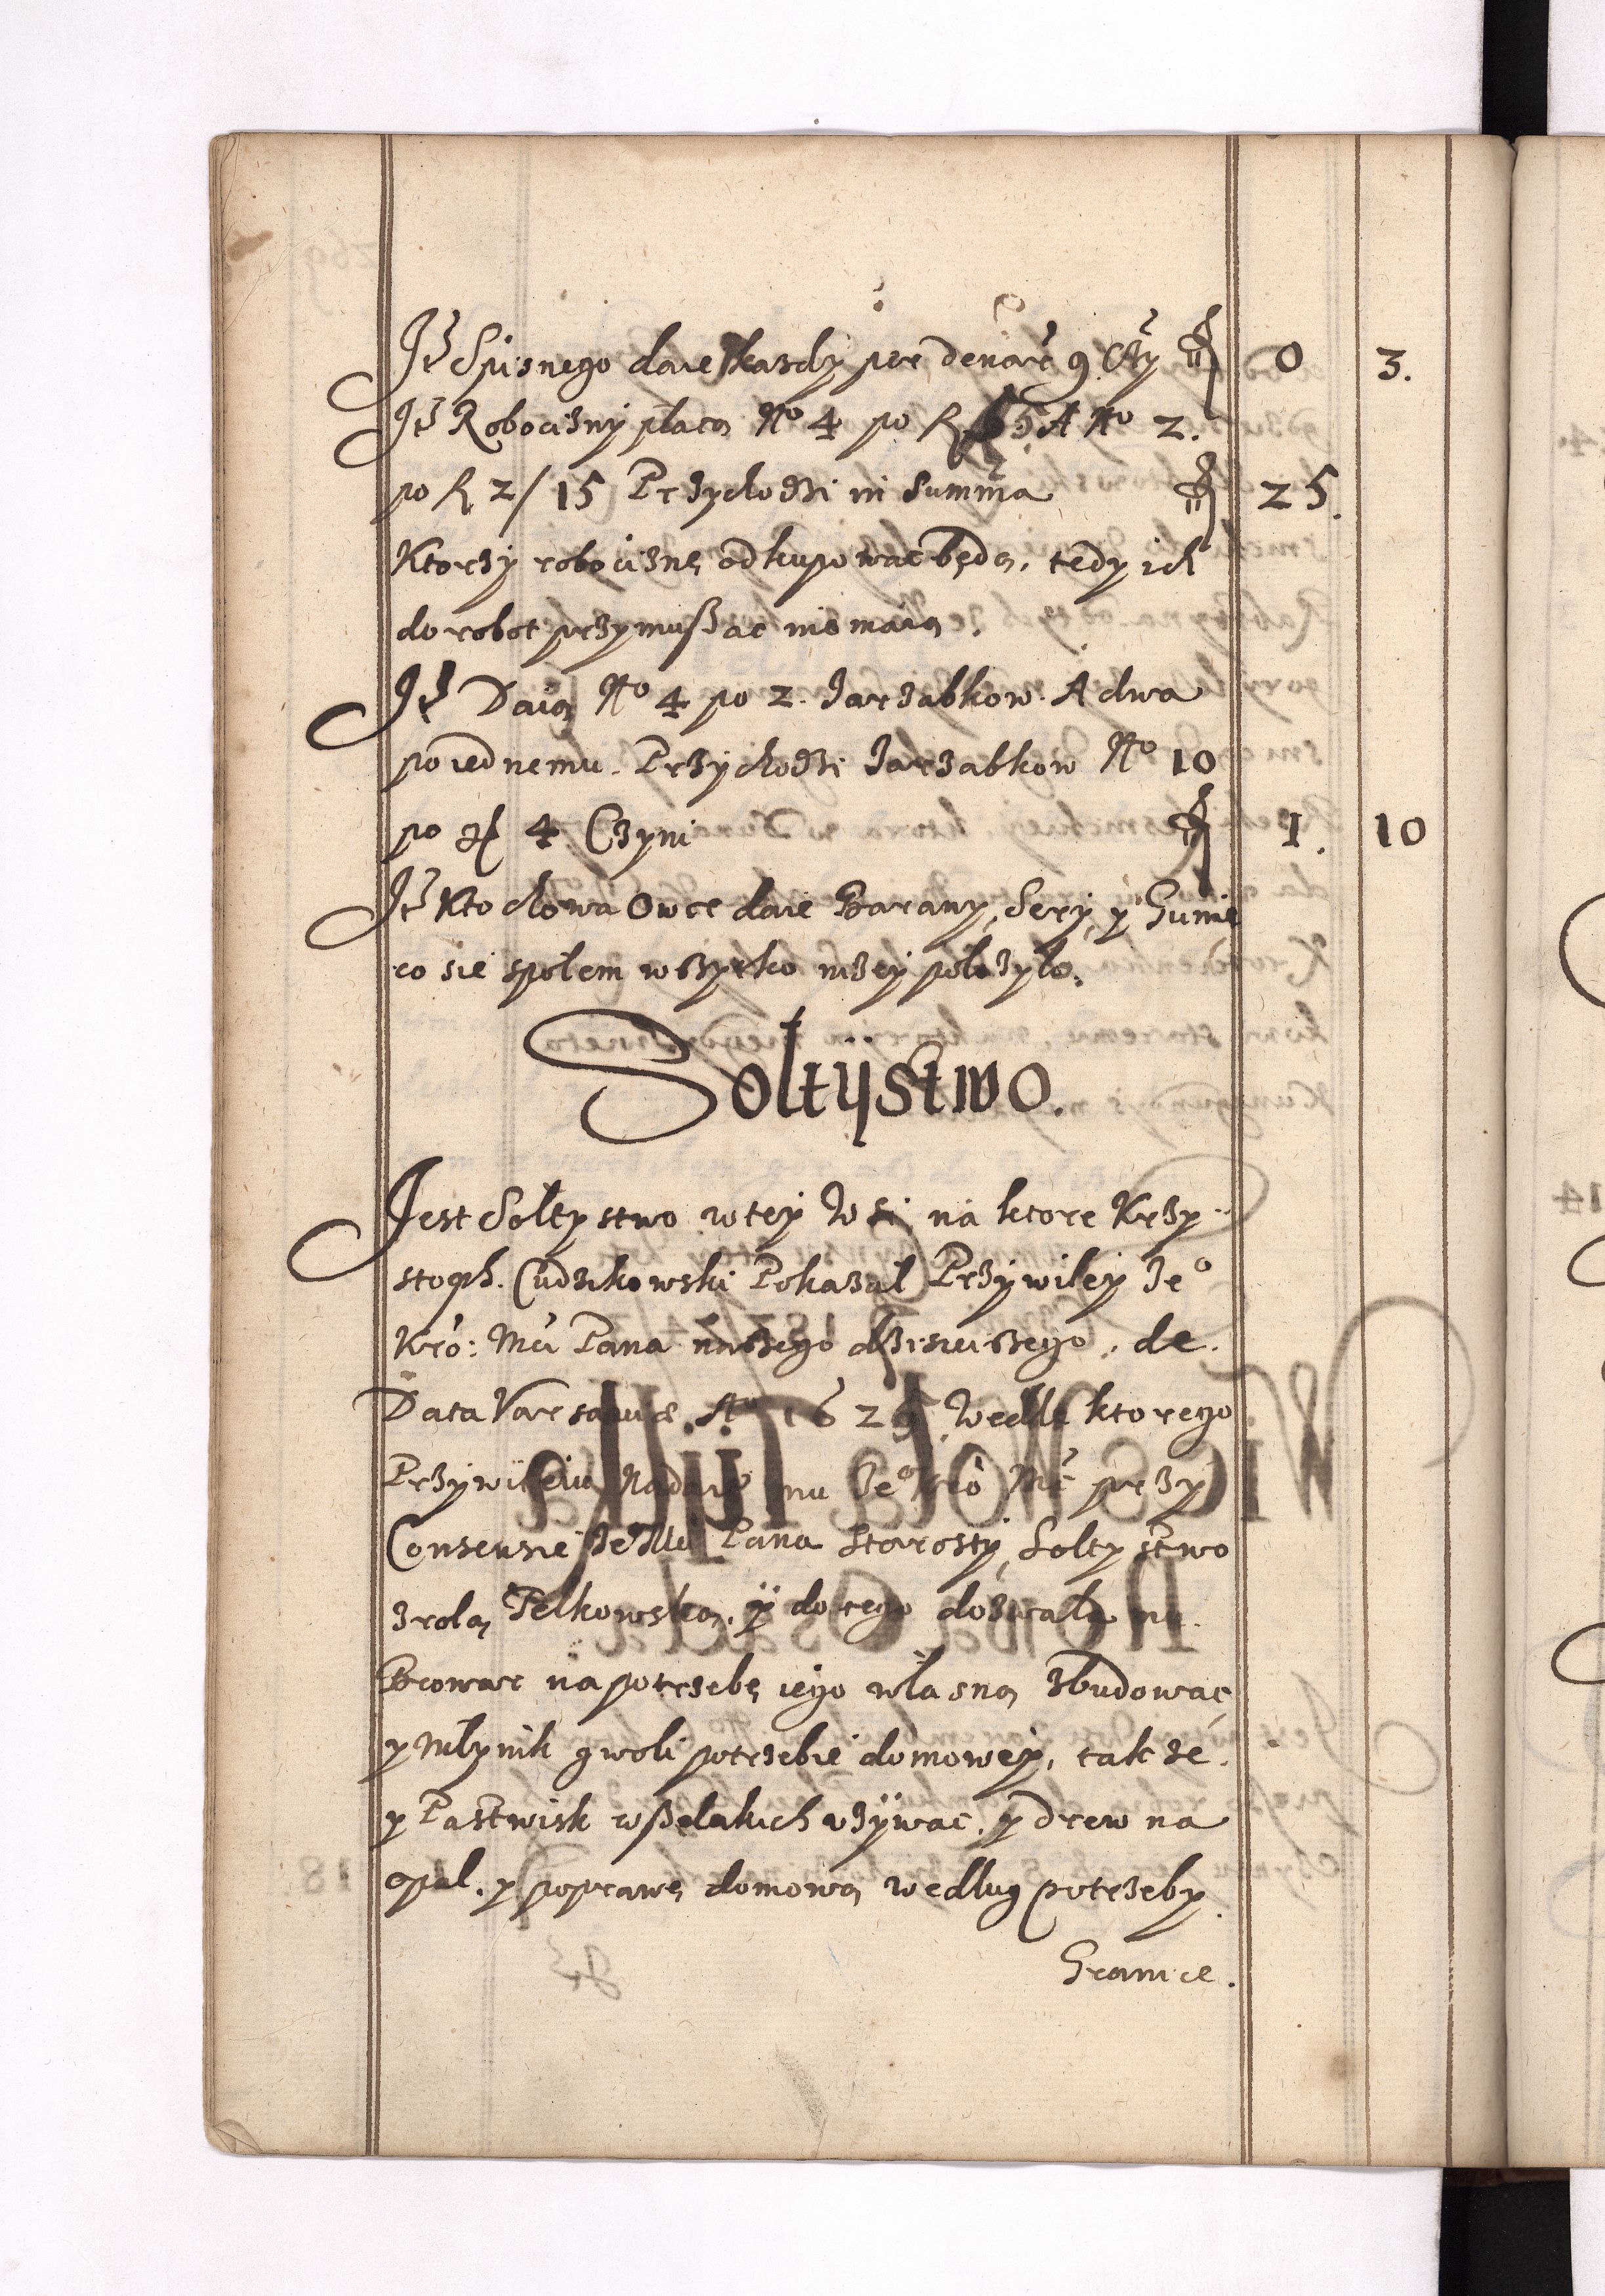 Itẽ Spisnego daie kazdy per denar 9 Czy 0 3.
Itẽ Robocizny płacą No 4 po f 5 A No 2.
po f 2/15 Przychodzi in Summa 25.
Ktorzy robociznę odkupowac będą, tedy ich
do robot przymußac nie maią.
Itẽ Daią No 4 po 2. Jarzabkow. A dwa
po iednemu. Przychodzi Jarzabkow No 10
po gł 4 Czyni 1. 10
Itẽ Kto chowa Owce daie Barany, Sery, y Gunie
co sie społem wszytko nizey położyło.
Sołtÿstwo.
Jest Sołtystwo w tey Wsi na ktore Krzy-
stoph. Cudzikowski Pokazał Przywiley Jeo
Kro: Mći Pana naszego dzisieiszego. de
Data Varsaviæ. Ao 1629 Wedle ktorego
Przywileiu Nadaie mu Jeo Kro Mć przy
Consensie Je Mći Pana Starosty, Sołtystwo
z rolą Pelkowską, y do tego dozwala mu
Browar na potrzebę iego własną zbudowac,
y Młynik gwoli potrzebie domowey, takze
y Pastwisk wßelakich vzÿwac. y drew na
opał. y poprawę domową według potrzeby.
Granice.